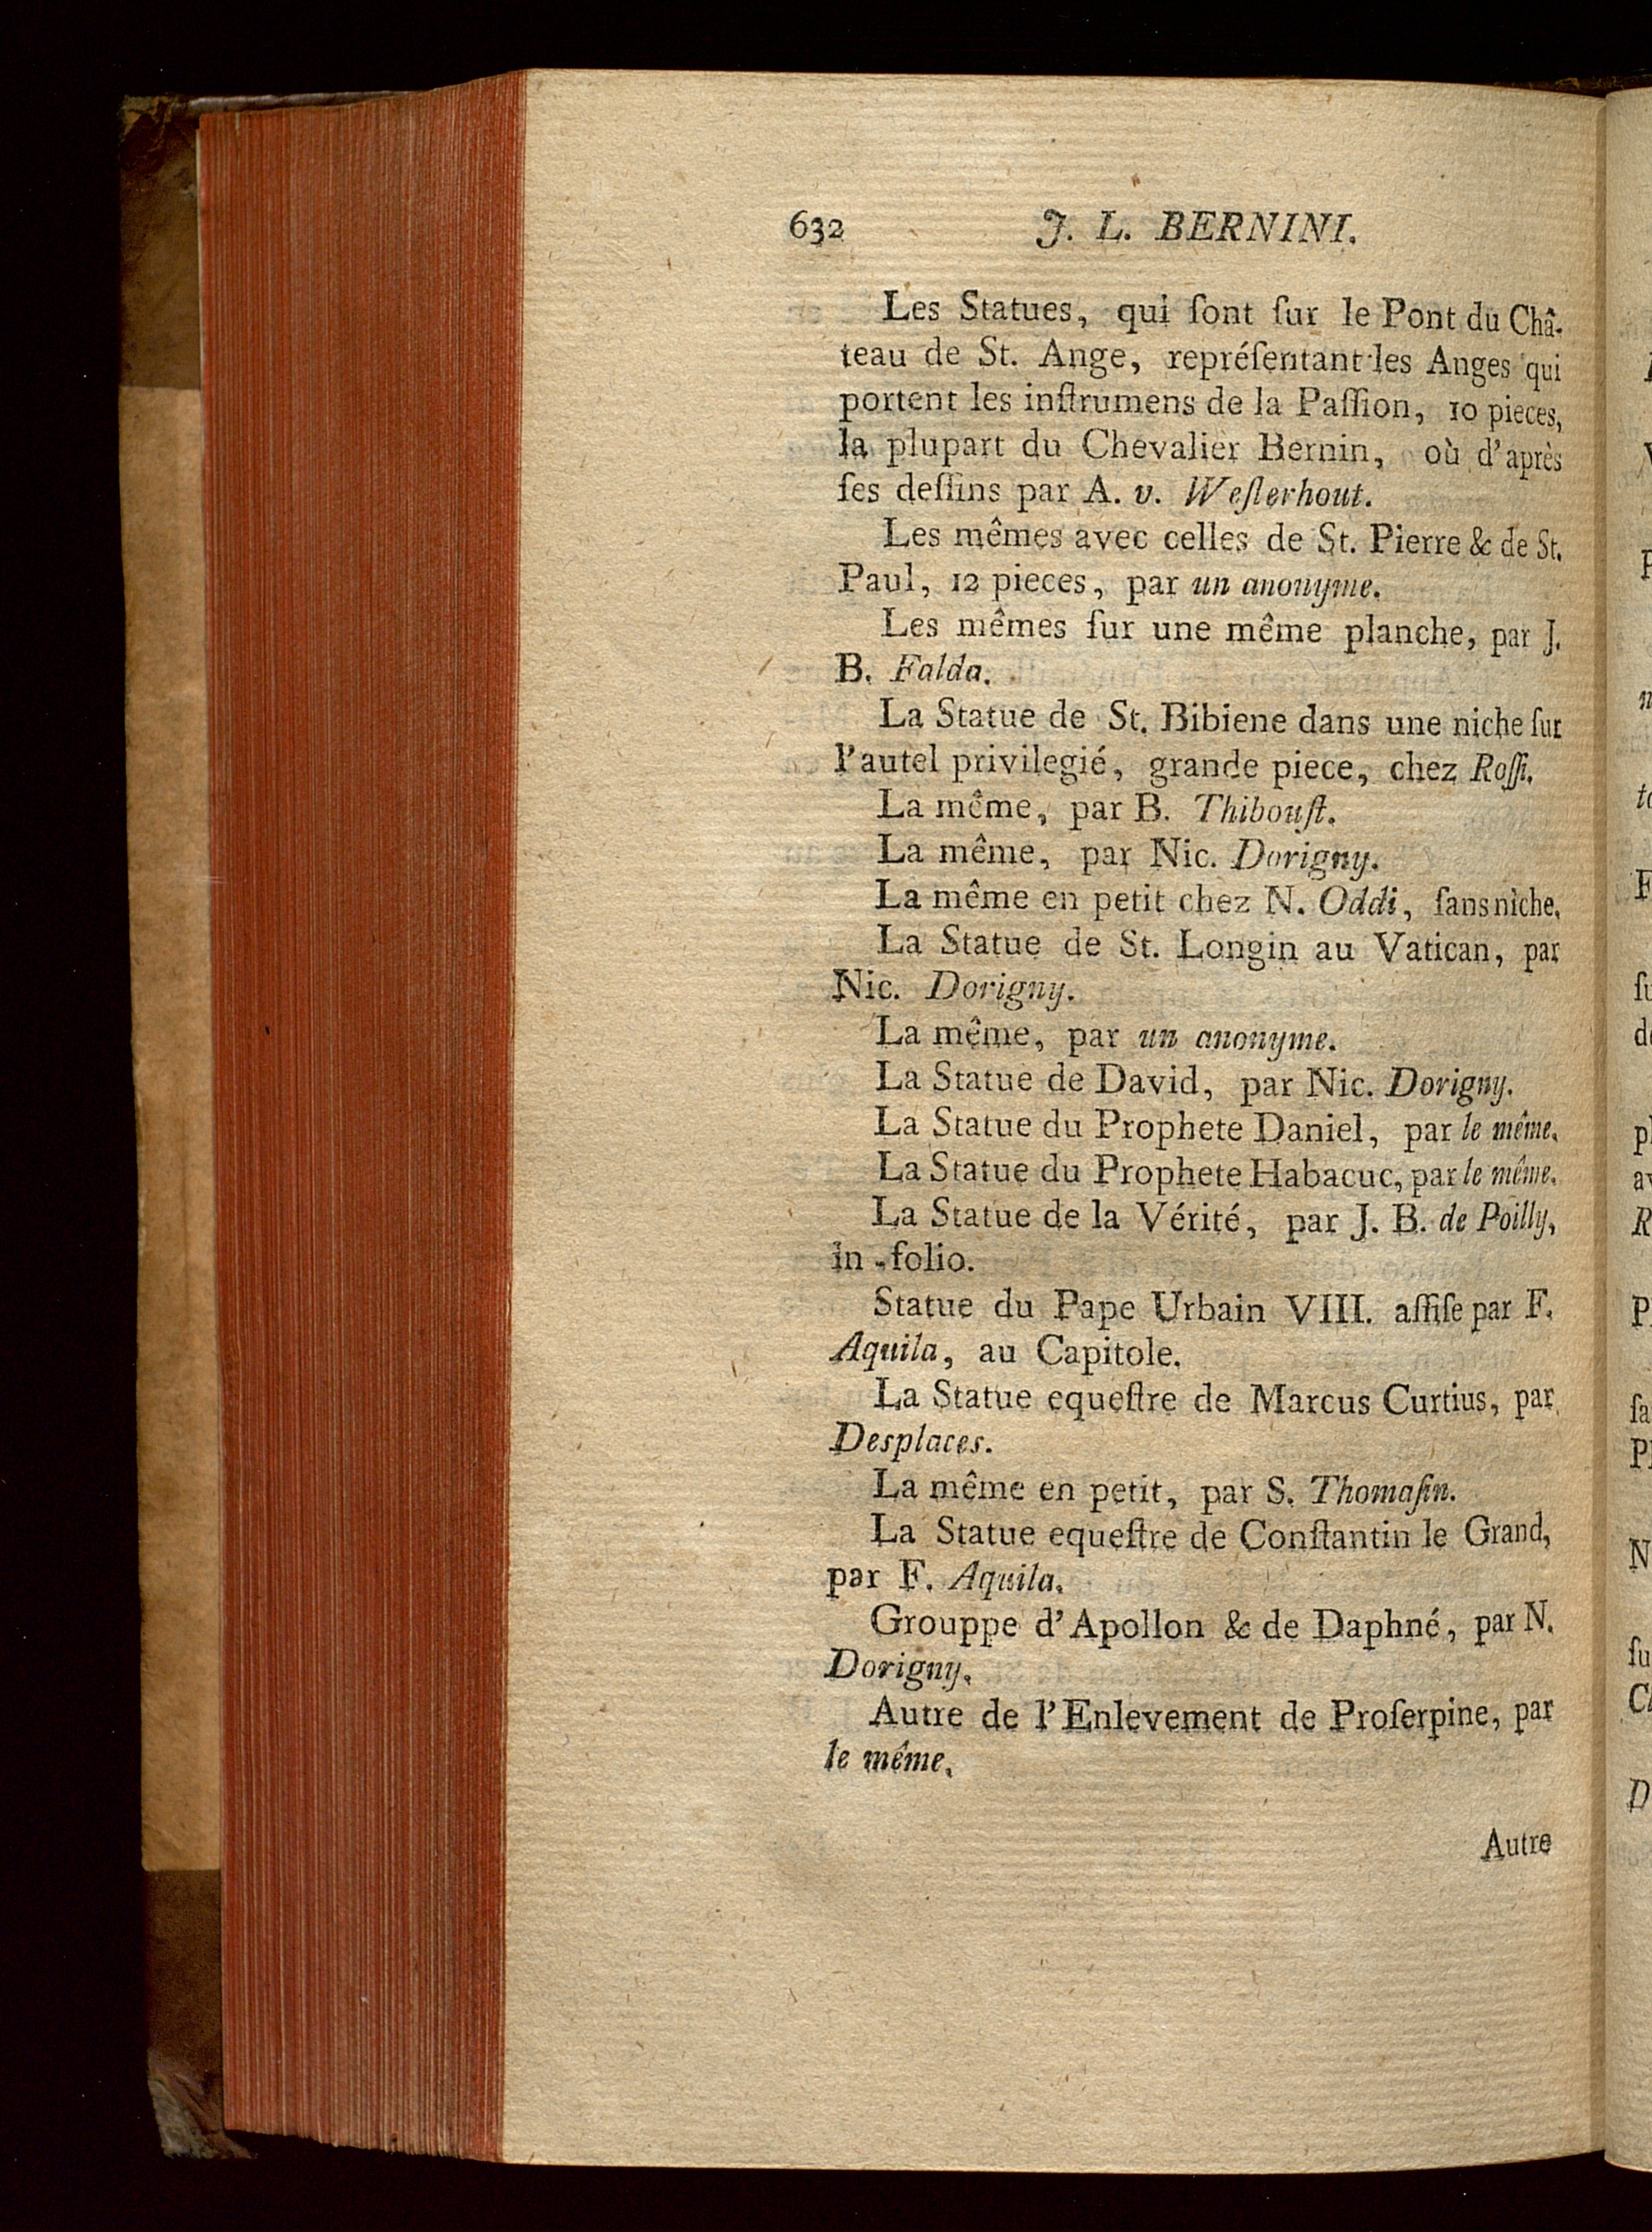 632 J. L. BERNINI.
Les Statues, qui ſont ſur le Pont du Châ-
teau de St. Ange, repréſentant les Anges qui
portent les inſtrumens de la Paſſion, 10 pieces,
la plupart du Chevalier Bernin, où d'après
ſes deſſins par A. v. Weſterhout.
Les mêmes avec celles de St. Pierre & de St.
Paul, 12 pieces, par un anonyme.
Les mêmes ſur une même planche, par J.
B. Falda.
La Statue de St. Bibiene dans une niche ſur
l'autel privilegié, grande piece, chez Roſſi.
La même, par B. Thibouſt.
La même, par Nic. Dorigny.
La même en petit chez N. Oddi, ſans niche.
La Statue de St. Longin au Vatican, par
Nic. Dorigny.
La même, par un anonyme.
La Statue de David, par Nic. Dorigny.
La Statue du Prophete Daniel, par le même.
La Statue du Prophete Habacuc, par le même.
La Statue de la Vérité, par J. B. de Poilly,
in-folio.
Statue du Pape Urbain VIII. aſſiſe par F.
Aquila, au Capitole.
La Statue equeſtre de Marcus Curtius, par
Desplaces.
La même en petit, par S. Thomaſin.
La Statue equeſtre de Conſtantin le Grand,
par F. Aquila.
Grouppe d'Apollon & de Daphné, par N.
Dorigny.
Autre de l'Enlevement de Proſerpine, par
le même.
Autre